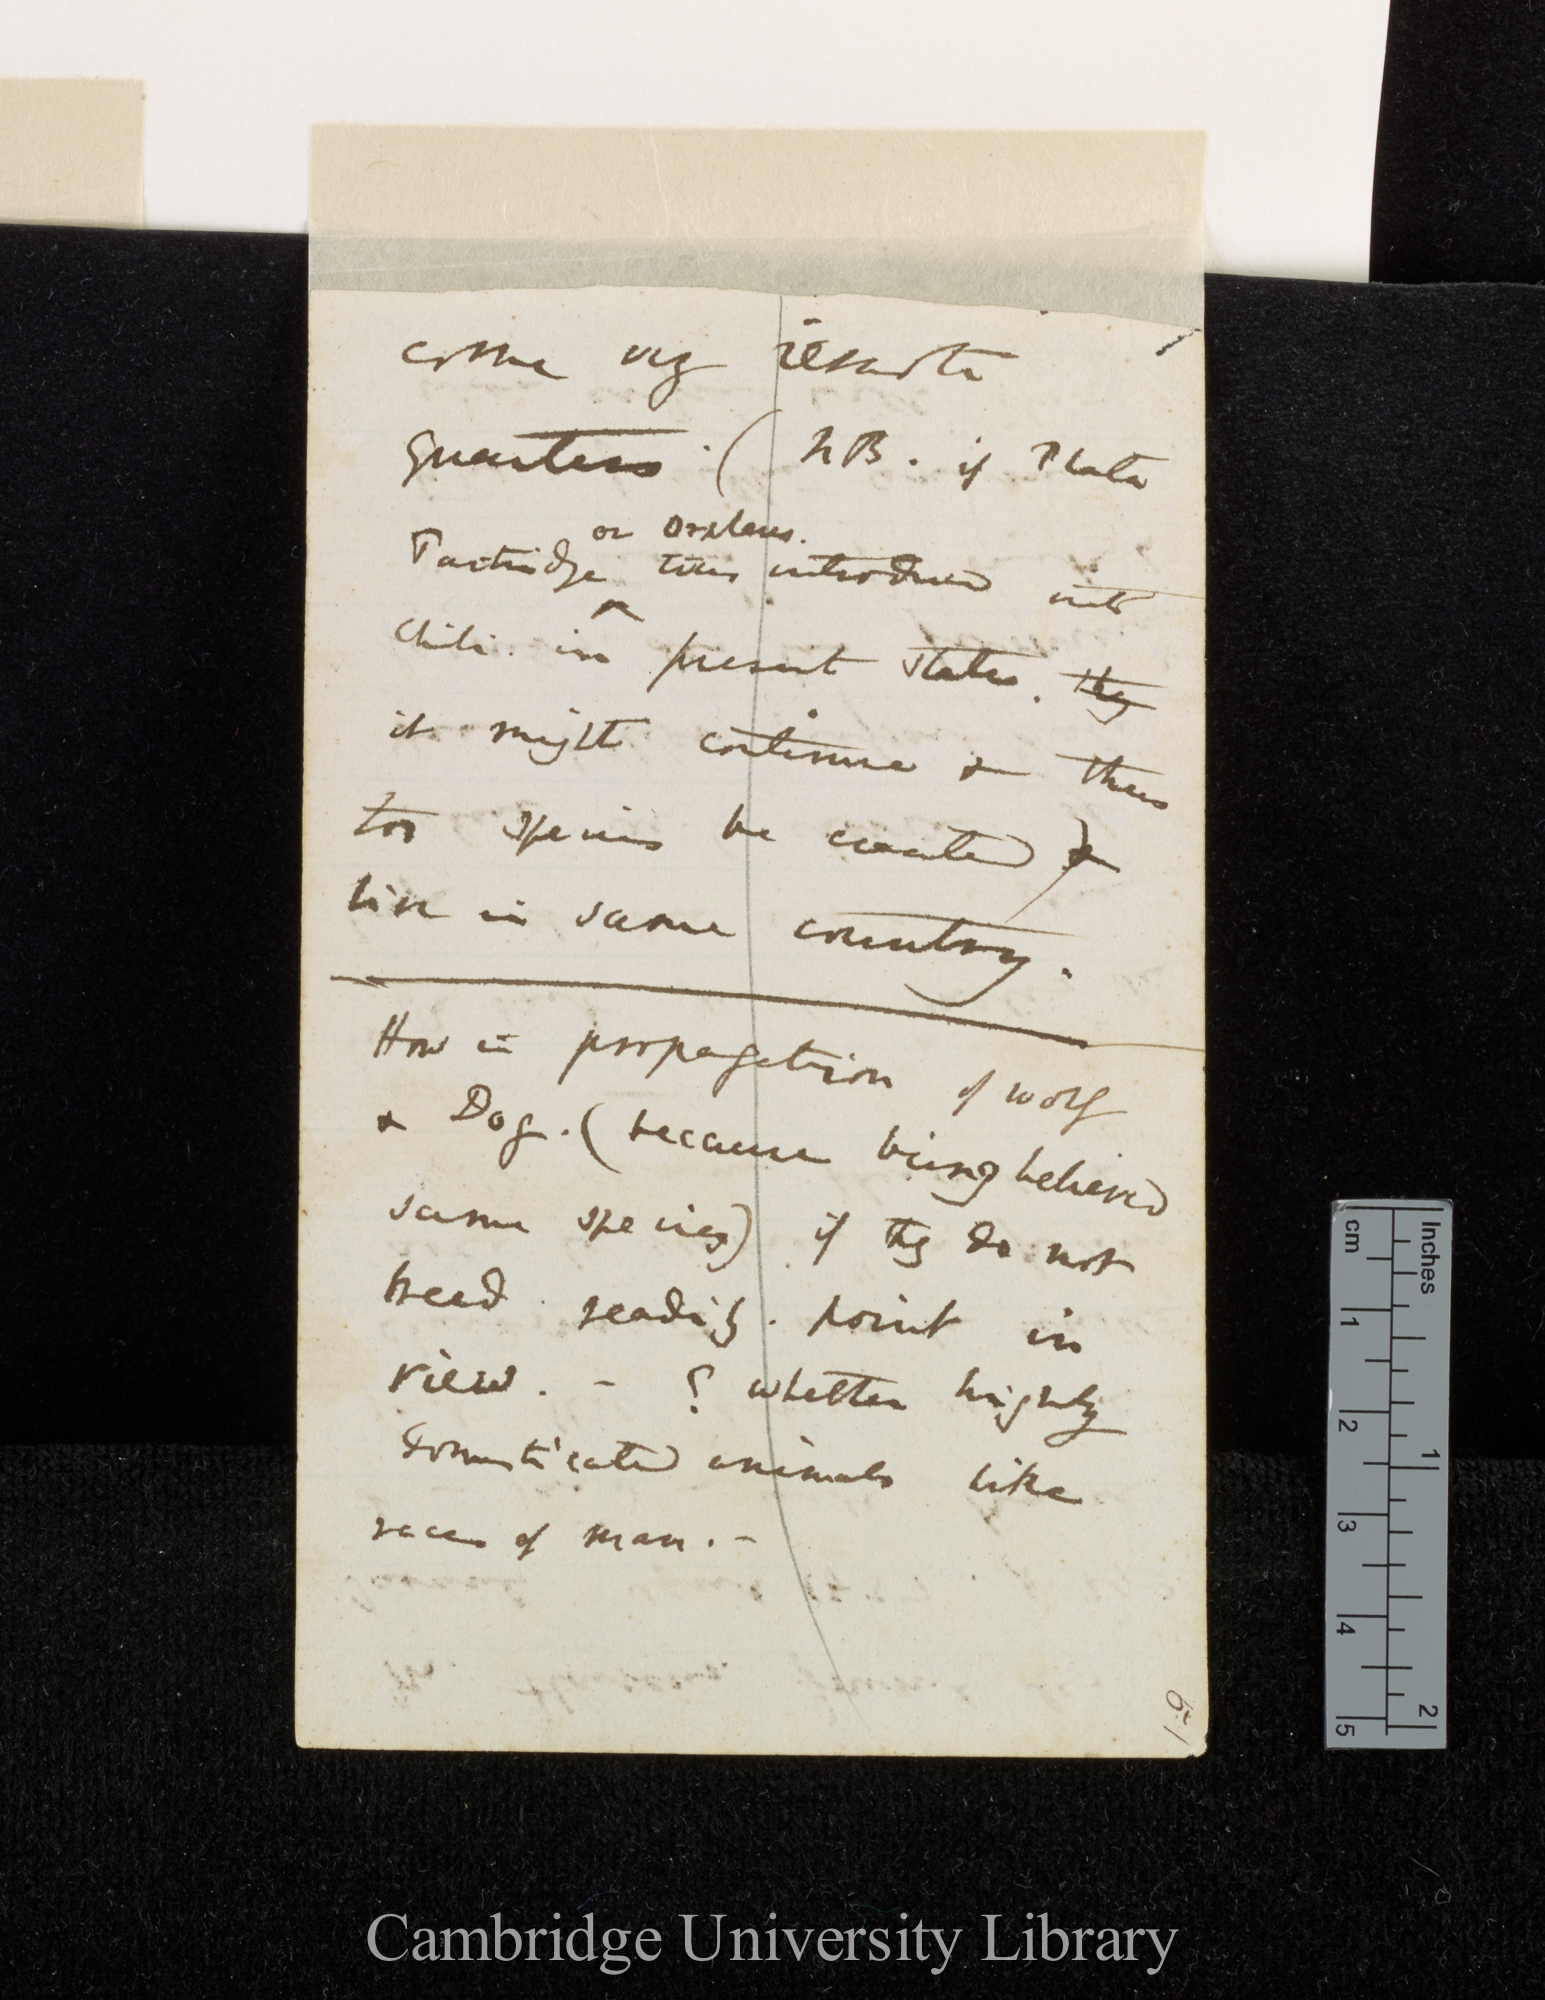 come very remote
quarters. ( NB. if Plata
or Orpheus.
Partridge were introduced into
Chile. in present states. they
it might continue & thus
two species be created &
live in same country.
How in propagation of wolf
& Dog. (because being believed
same species) if they do not
breed readily. point in
view. – ? whether highly
domesticated animals like
races of man. –
cm
Inches
1
2
3
4
5
1
2
Cambridge University Library